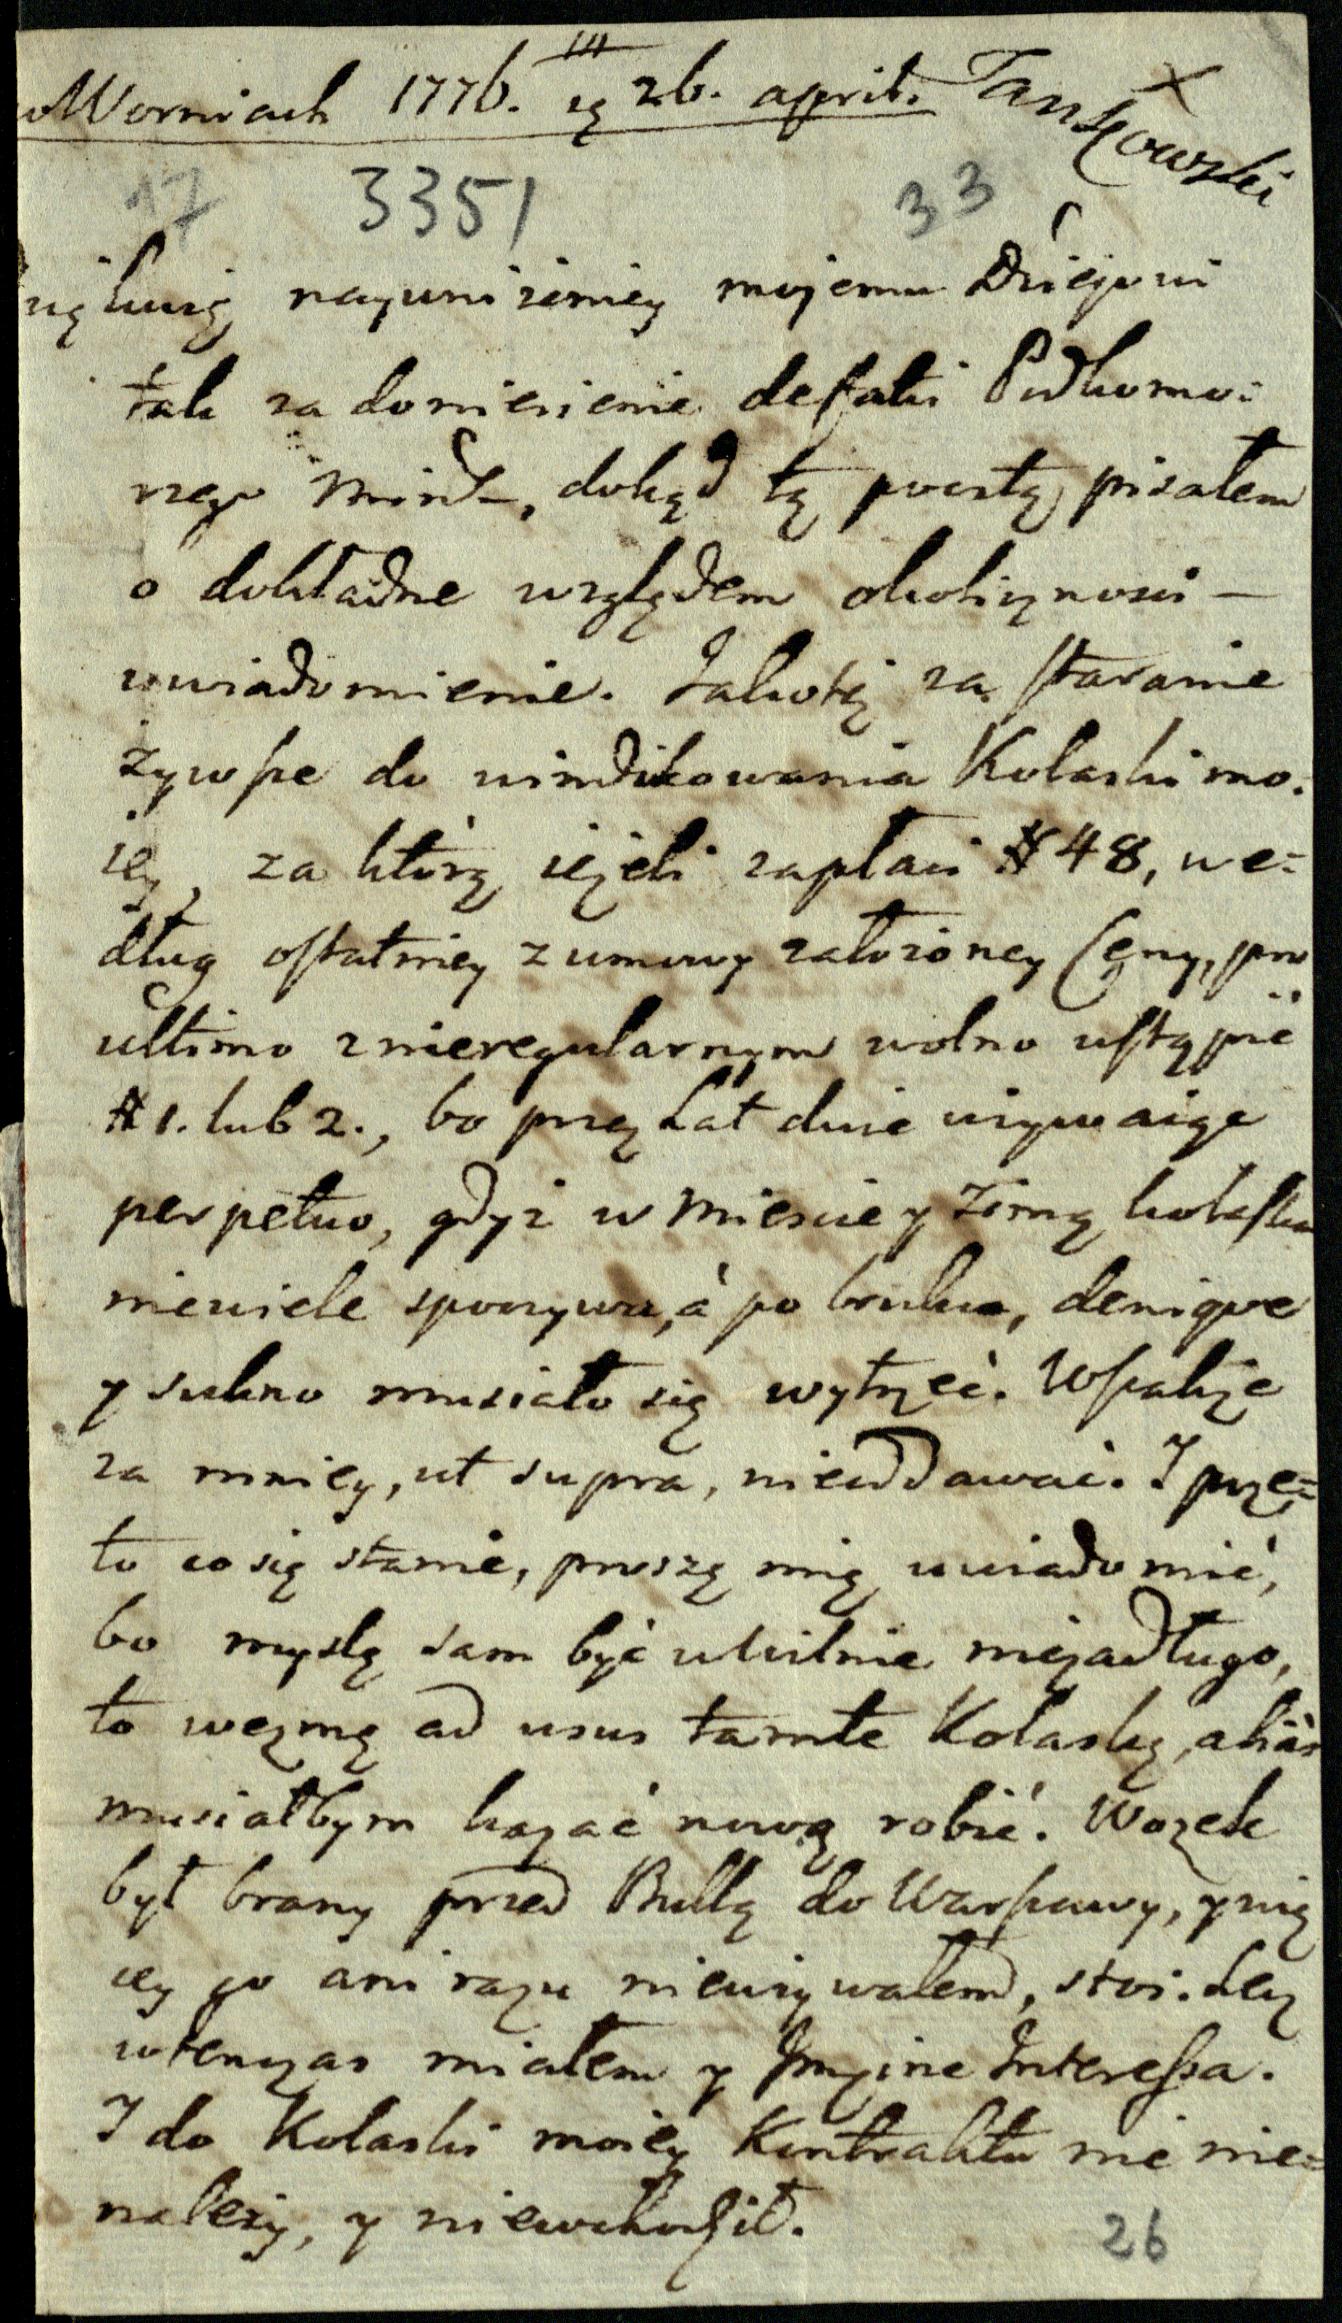 w Worniach 1776. 26. april. Tańkowski
17 3351 33
Dziękuię nayuniżeniey mojemu Dziejowi
tak za doniesienie de fatis Podkomo=
rzego Mińs-, dokąd tą pocztą pisałem
o dokładne względem okoliczności -
uwiadomienie. Jakotéż za staranie
żywsze do windikowania Kolaski mo=
iey, za którą ieżeli zapłaci # 48, we=
dług ostatniey z umowy założoney Ceny, pro
ultimo z nieregularnym wolno ustąpić
# 1. lub 2., bo przez Lat dwie używaiąc
perpetuo, gdyż w Mieście y Zimą kolaska
niewiele spoczywa, à po bruku, denique
y sukno musiało się wytrzeć. Wszakże
za mniey, ut supra, nieoddawać. I prze=
to co się stanie, proszę mię uwiadomić,
bo myślę sam być w Wilnie niezadługo,
to wezmę ad usus tamte Kolaskę, aliàs
musiałbym kazać nową robić. Wozek
był brany przed Bullą do Warszawy, y wię
cey go ani razu nieużywałem, stoi. Lecz
wtenczas miałem y Jnszine Jnteressa.
I do Kolaski moiey Kontraktu nic nie=
należy, y niewchodził.
26